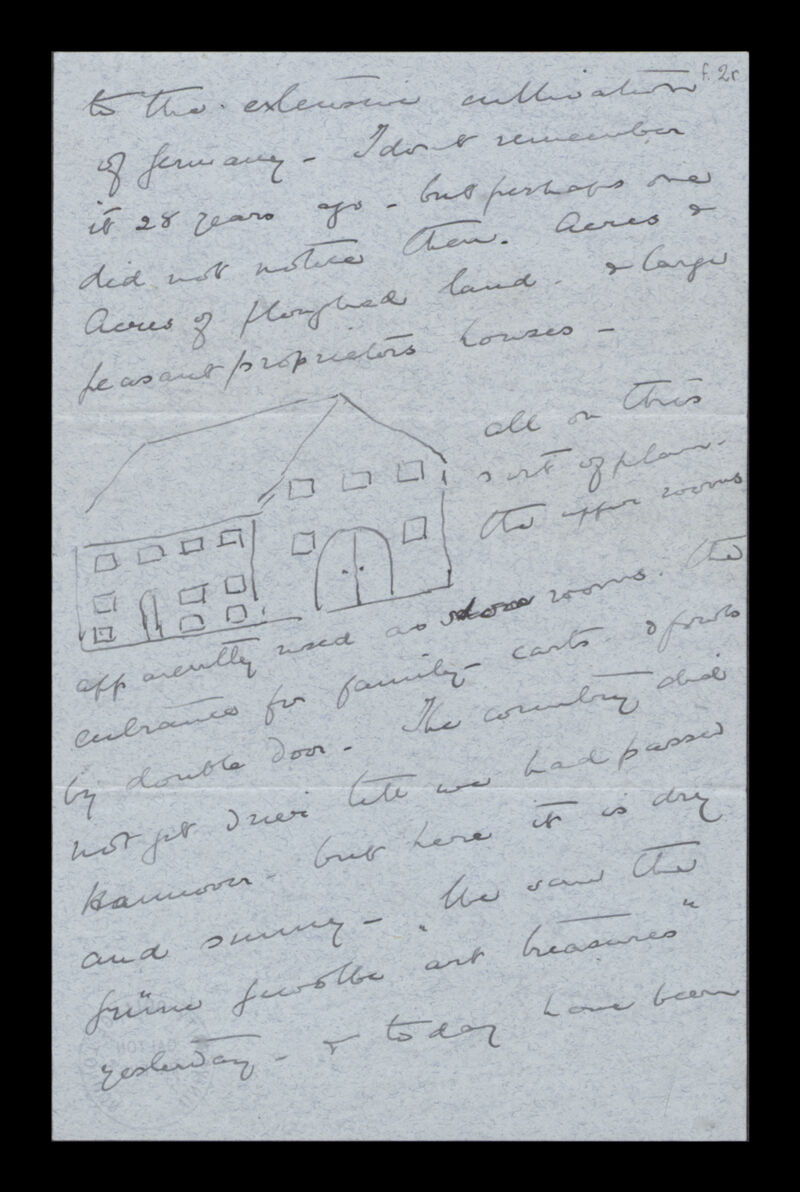 f. 2r
to the extensive cultivation
of Germany - I don't remember
it 28 years ago - but perhaps one
did not notice then. Acres &
Acres of ploughed land. & large
peasant proprietors houses -
all on this
sort of plan.
the upper rooms
apparently used as store rooms. the
entrance for family carts & fowls
by double door. The country did
not get drier till we had passed
Hannover. but here it is dry
and sunny - We saw the
Grüne Gewölbe "art treasures"
yesterday - & today have been